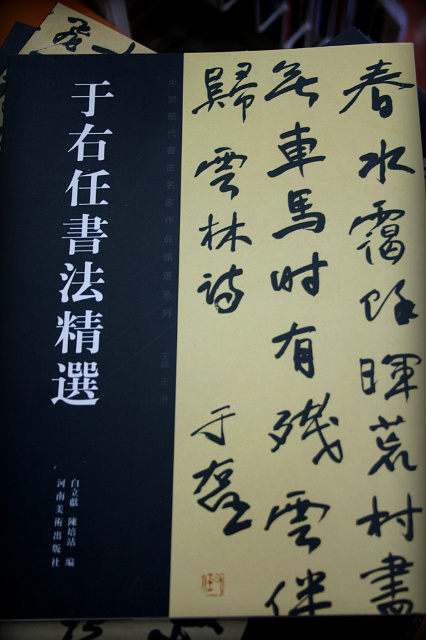 于右任書法精選
中國歷代書法名家作品精選系列
白立獻 陳培站 編
河南美術出版社
春水靄餘暉荒村畫
無車馬时有殘雲伴
歸雲林詩 于右任